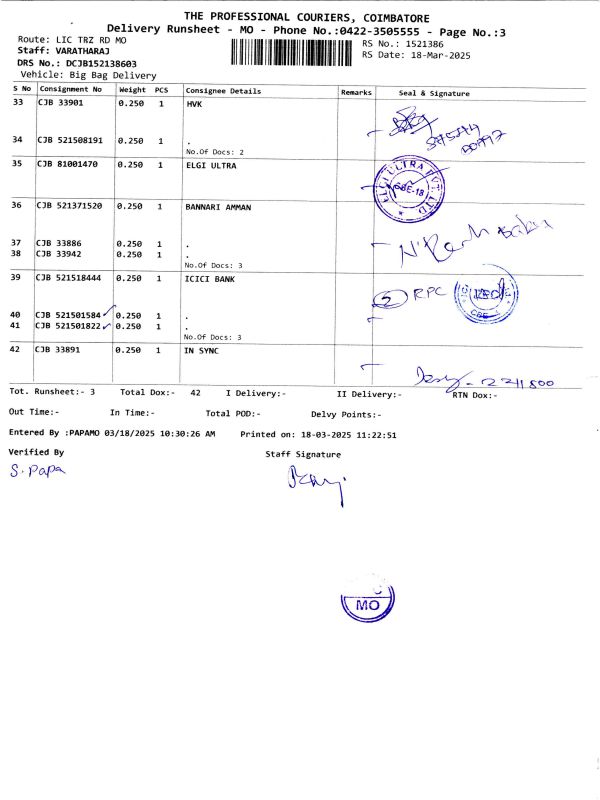 THE PROFESSIONAL COURIERS, COIMBATORE
Delivery Runsheet - MO - Phone No.:0422-3505555 - Page No.:3
Route: LIC TRZ RD MO
RS No.: 1521386
Staff: VARATHARAJ
RS Date: 18-Mar-2025
DRS No.: DCJB152138603
Vehicle: Big Bag Delivery
S No Consignment No Weight PCS Consignee Details Remarks Seal & Signature
33 CJB 33901 0.250 1 HVK
34 CJB 521508191 0.250 1 .
No.Of Docs: 2
35 CJB 81001470 0.250 1 ELGI ULTRA
ELGI ULTRA PVT LTD
CBE-18
36 CJB 521371520 0.250 1 BANNARI AMMAN
37 CJB 33886 0.250 1 .
38 CJB 33942 0.250 1 .
No.Of Docs: 3
39 CJB 521518444 0.250 1 ICICI BANK
3 RPC
40 CJB 521501584 0.250 1 .
41 CJB 521501822 0.250 1 .
No.Of Docs: 3
42 CJB 33891 0.250 1 IN SYNC
Tot. Runsheet:- 3 Total Dox:- 42 I Delivery:- II Delivery:- RTN Dox:-
Out Time:- In Time:- Total POD:- Delvy Points:-
Entered By :PAPAMO 03/18/2025 10:30:26 AM Printed on: 18-03-2025 11:22:51
Verified By Staff Signature
S. Papa
MO